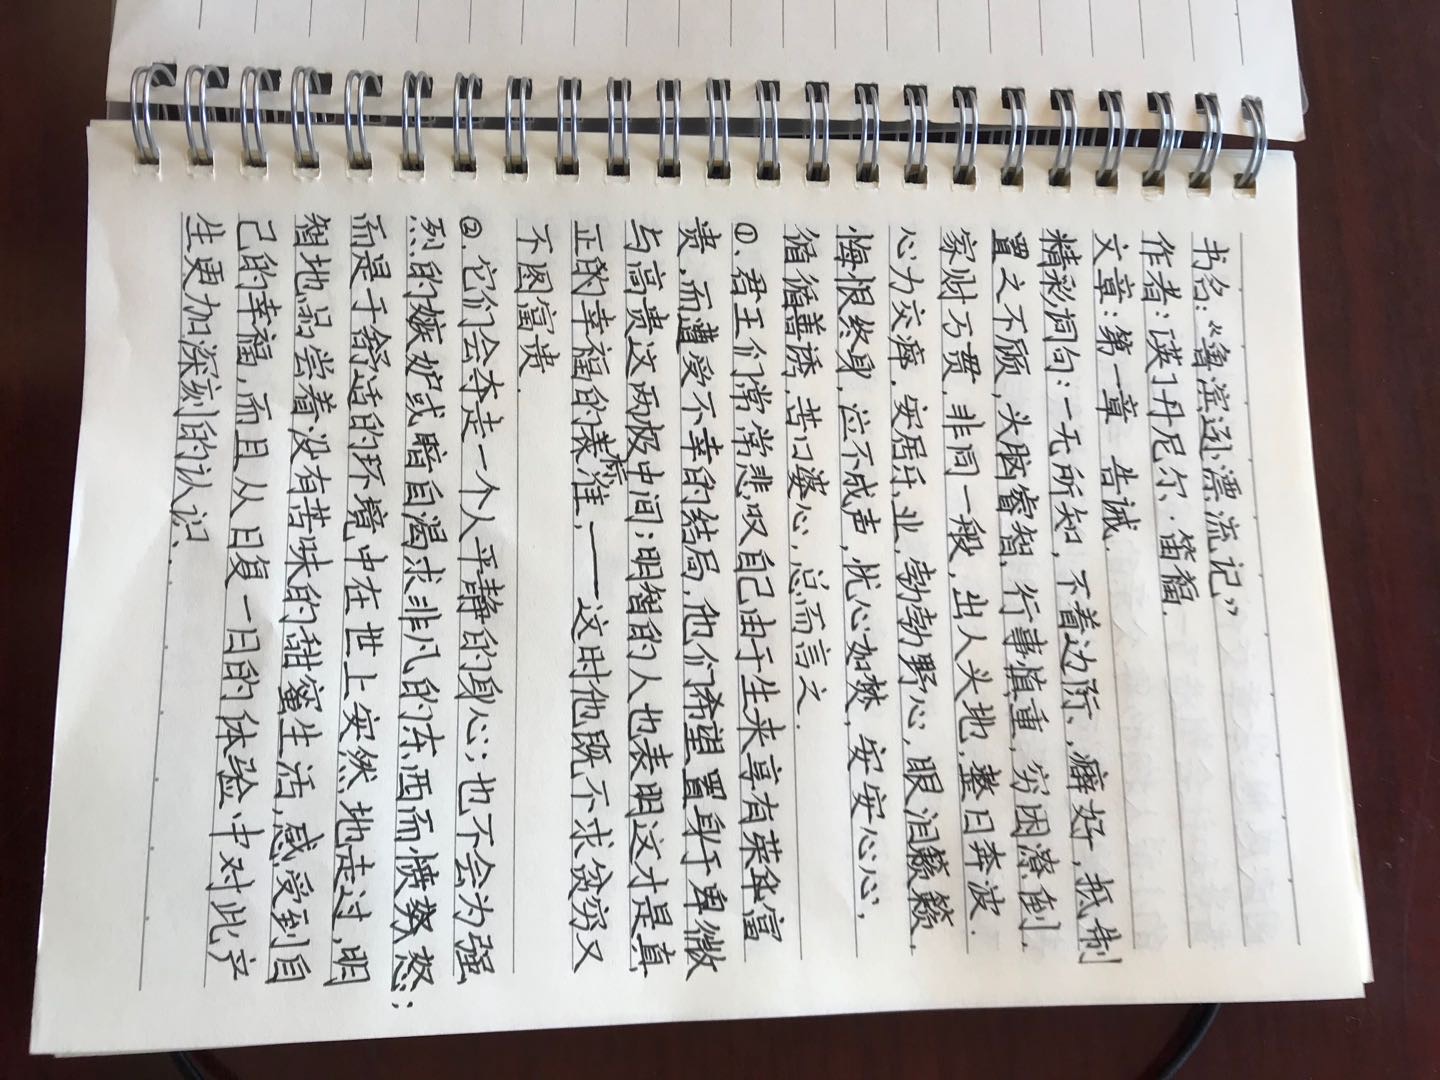 书名:“鲁滨逊漂流记”
作者:(英)丹尼尔·笛福.
文章:第一章 告诫.
精彩词句:一无所知,不着边际,癖好,抵制
置之不顾,头脑睿智,行事慎重,穷困潦倒.
家财万贯,非同一般,出人头地,整日奔波.
心力交瘁.安居乐业,勃勃野心,眼泪簌簌.
悔恨终身,泣不成声,忧心如焚,安安心心,
循循善诱,苦口婆心,总而言之.
①、君王们常常悲叹自己由于生来享有荣华富
贵,而遭受不幸的结局,他们希望置身于卑微
与高贵这两极中间;明智的人也表明这才是真
正的幸福的标准,——这时他既不求贫穷又
不图富贵.
②.它们会夺走一个人平静的身心;也不会为强
烈的嫉妒或暗自渴求非凡的东西而愤怒;
而是于舒适的环境中在世上安然地走过,明
智地品尝着没有苦味的甜蜜生活,感受到自
己的幸福,而且从日复一日的体验中对此产
生更加深刻的认识.